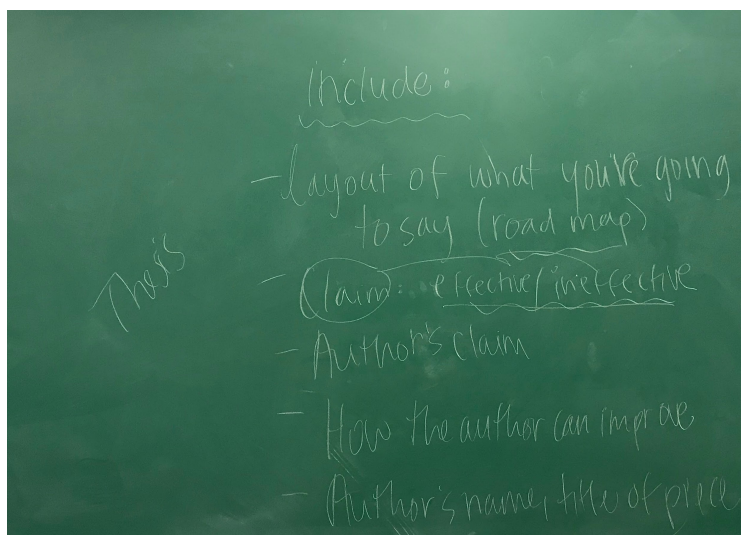 Include:
- Layout of what you're going
to say (road map)
Thesis
- Claim: effective/ineffective
- Author's claim
- How the author can improve
- Author's name, title of piece